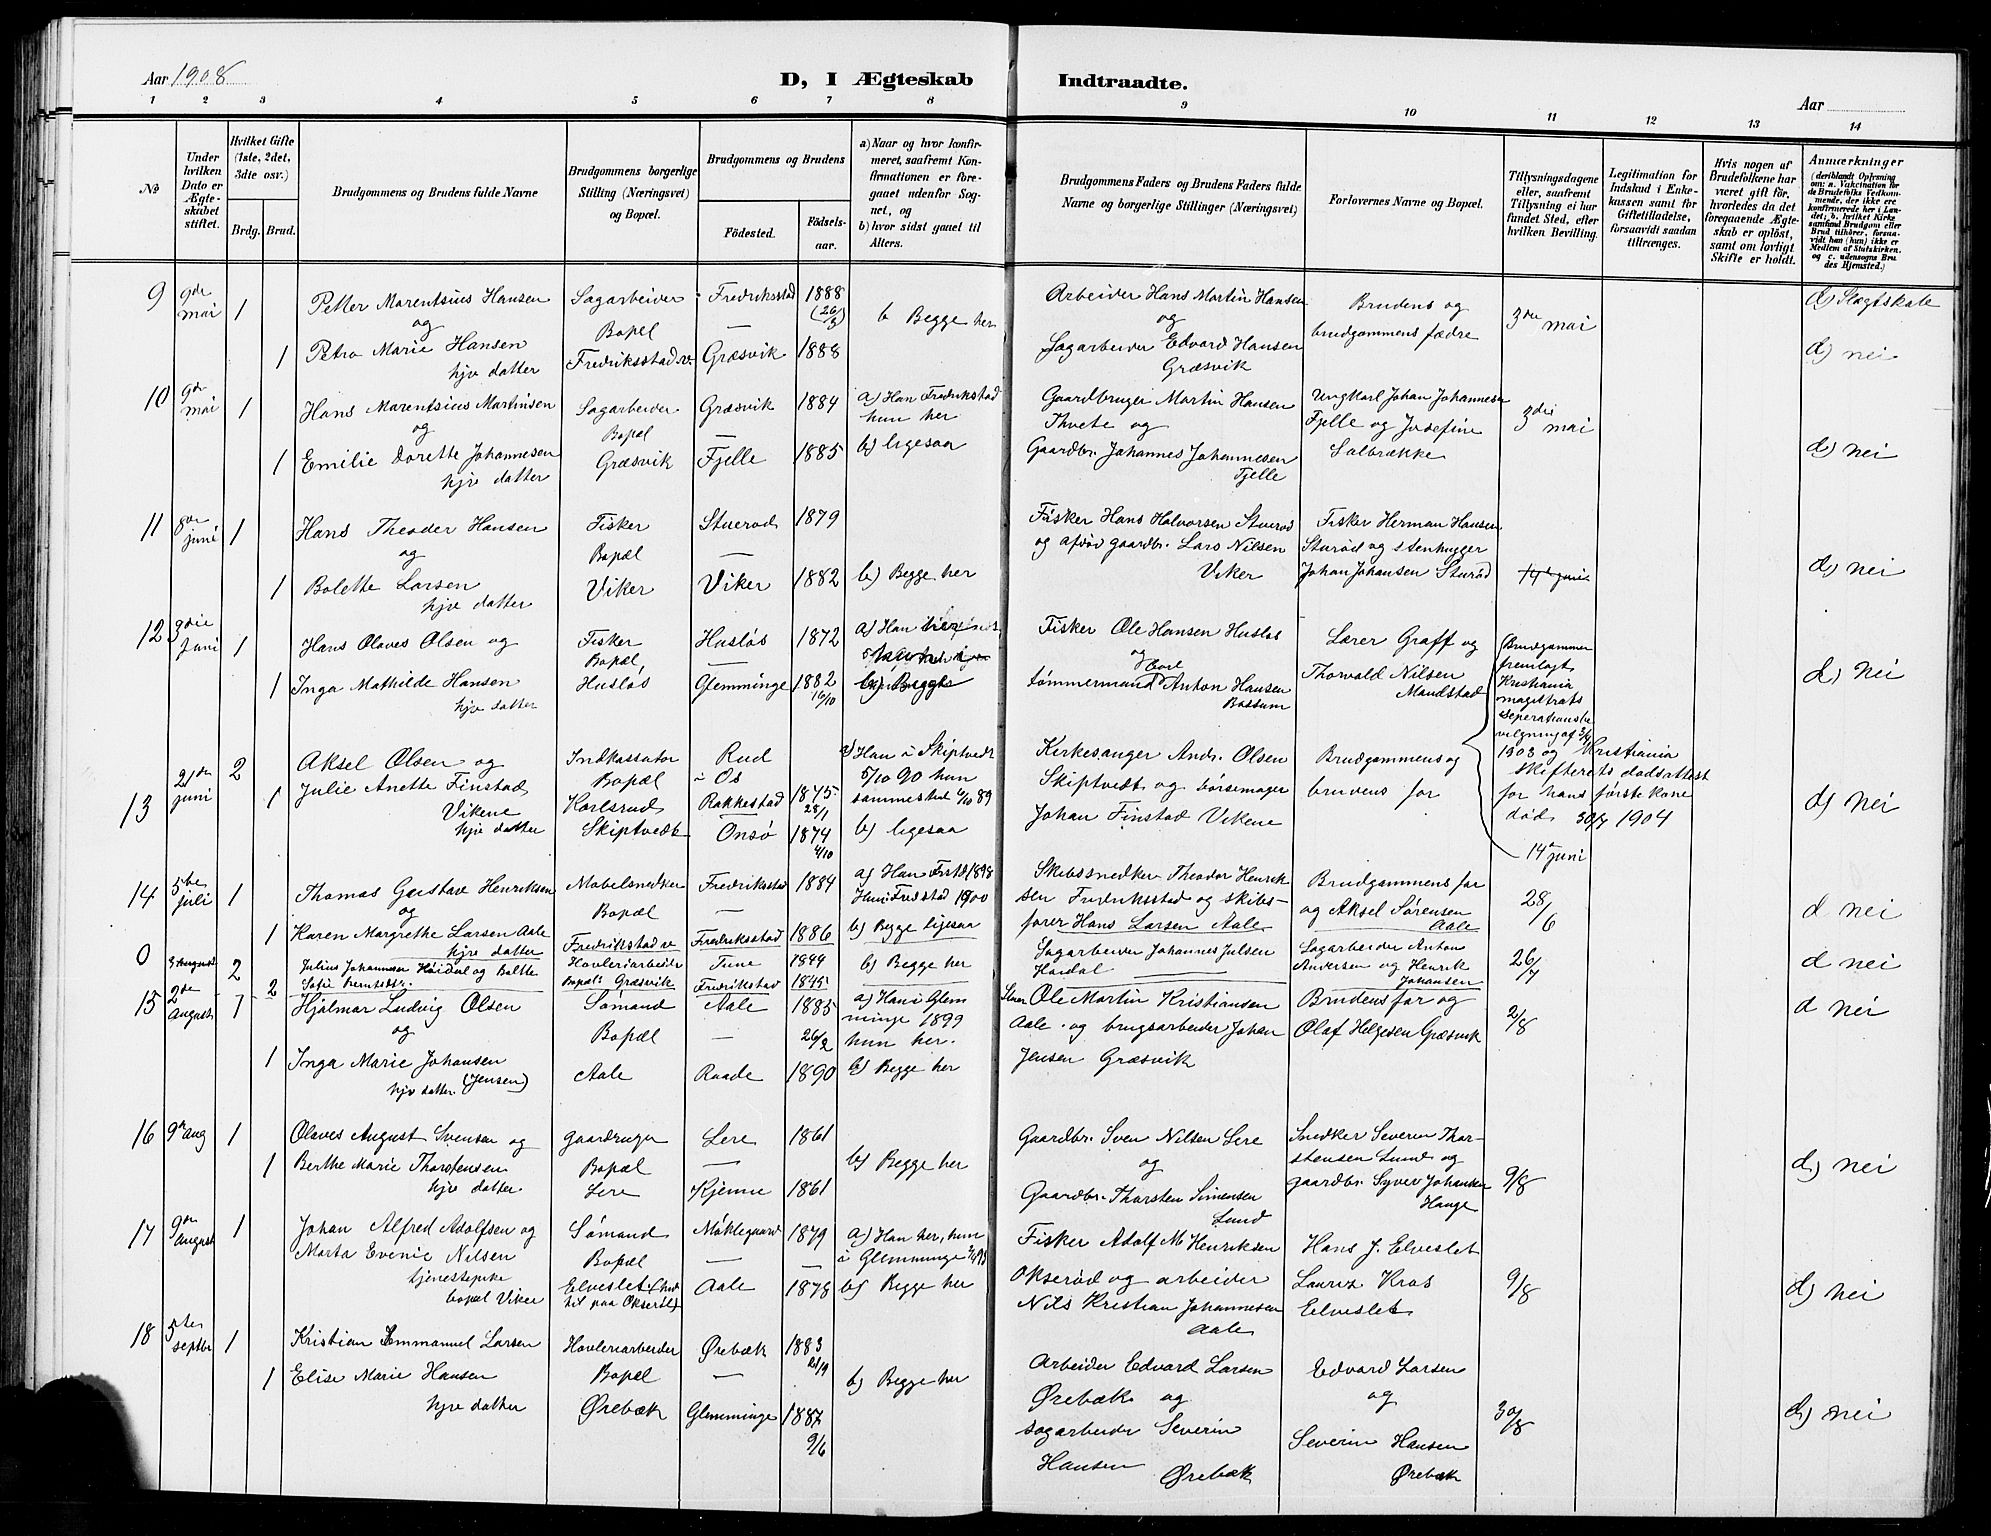 Aar 1908
D, I Ægteskab Indtraadte.
Aar
1 2 3 4 5 6 7 8 9 10 11 12 13 14
No
Under hvilken Dato er Ægteskabet stiftet.
Hvilket Gifte (1ste, 2det, 3die osv.)
Brdg. Brud.
Brudgommens og Brudens fulde Navne
Brudgommens borgerlige Stilling (Næringsvei) og Bopæl.
Brudgommens og Brudens
Födested. Födselsaar.
a) Naar og hvor konfirmeret, saafremt Konfirmationen er foregaaet udenfor Sognet, og
b) hvor sidst gaaet til Alters.
Brudgommens Faders og Brudens Faders fulde Navne og borgerlige Stillinger (Næringsvei)
Forlovernes Navne og Bopæl.
Tillysningsdagene eller, saafremt Tillysning ei har fundet Sted, efter hvilken Bevilling.
Legitimation for Indskud i Enkekassen samt for Giftetilladelse, forsaavidt saadan tiltrænges.
Hvis nogen af Brudefolkene har været gift för, hvorledes da det foregaaende Ægteskab er oplöst, samt om lovligt Skifte er holdt.
Anmærkninger (deriblandt Oplysning om: a. Vakcination for de Brudefolks Vedkommende, der ikke ere konfirmerede her i Landet; b. hvilket Kirkesamfund Brudgom eller Brud tilhörer, forsaavidt han (hun) ikke er Medlem af Statskirken, og c. udensogns Brudes Hjemsted.)
9 9de mai 1 Petter Marentsius Hansen Sagarbeider Fredriksstad 1888 (26/3) b Begge her Arbeider Hans Martin Hansen Brudens og 3die mai d) Slægtskab
og Bopel — og brudgommens fædre
1 Petra Marie Hansen Fredriksstad v. Græsvik 1888 Sagarbeider Edvard Hansen d) nei
hjv datter Græsvik
10 9de mai 1 Hans Marentsius Martinsen Sagarbeider Græsvik 1884 a) Han Fredrikstad Gaardbruger Martin Hansen Ungkarl Johan Johannesen 3die mai
og Bopæl — hun her Thvete og Fjelle og Josefine
1 Emilie Dorette Johannesen Græsvik Fjelle 1885 b) ligesaa Gaardbr. Johannes Johannesen Solbrække d) nei
hjv datter Fjelle
11 8de juni 1 Hans Theodor Hansen Fisker Sturød 1879 Fisker Hans Halvorsen Sturød Fisker Herman Hansen
og Bopæl — og afdød gaardbr. Lars Nilsen Sturød og stenhugger
1 Bolette Larsen Viker Viker 1882 b) Begge her Viker Johan Johansen Sturød 14de juni d) nei
hjv datter
12 3die juni 1 Hans Olaves Olsen og Fisker Husløs 1872 a) Han Fisker Ole Hansen Husløs Lærer Graff og Brudgommen
Bopæl, — og Thorvald Nilsen fremlagt
1 Inga Mathilde Hansen Husløs Glemminge 1882 16/10 b) Begge tømmermand Carl Anton Hansen Mandstad Kristiania d) nei
hjv datter Bossum magistrats
seperationsbevilgning af
21de juni 2 Aksel Olsen og Indkassator Rud a) Han i Skiptvedt Kirkesanger Andr. Olsen Brudgommens og 1903 og Kristiania
13 1 Julie Anette Finstad Bopæl i Os 5/10 90 hun Skiptvedt og børsemager brudens far skifterets dødsattest
Vikene Karlsrud Rakkestad 1875 28/1 sammested 4/10 89 Johan Finstad Vikene for hans første kone d) nei
hjv datter Skiptvedt Onsø 1874 4/10 b) ligesaa død 30/7 1904
14de juni
14 5te juli 1 Thomas Gustav Henriksen Møbelsnedker Fredriksstad 1884 a) Han Frstd 1898 Skibssnedker Theodor Henriksen Brudgommens far 28/6
og Bopæl — Hun i Fredstad 1900 Fredriksstad og skibs- og Aksel Sørensen d nei
1 Karen Margrethe Larsen Aale Fredrikstad v Fredriksstad 1886 b) Begge ligesaa fører Hans Larsen Aale Aale
hjv datter
0 3 August 2 Julius Johannesen Høidal og Bolette Høvleriarbeider Tune 1844 b) Begge her Sagarbeider Johannes Julsen Sagarbeider Anton 26/7 d nei
2 Sofie Berntsdtr. Bopæl Græsvik Fredrikstad 1845 Høidal Andersen og Henrik Johansen
15 2de august 1 Hjalmar Ludvig Olsen Sømand Aale 1885 a) Han i Glem Ole Martin Kristiansen Brudens far og 2/8 d nei
og Bopæl — 26/2 minge 1899 Aale og brugsarbeider Johan Olaf Helgesen Græsvik
hun her.
1 Inga Marie Johansen Aale Raade 1890 b) Begge her Jensen Græsvik
hjv datter (Jensen)
16 9de aug 1 Olaves August Svensen og gaardbruger Lere 1861 Gaardbr. Sven Nilsen Lere Snedker Severin Thor-
1 Berthe Marie Thorstensen Bopæl — b) Begge her og stensen Lund og 9/8 d) nei
hjv datter Lere Kjenne 1861 Gaardbr. Thorsten Simensen gaardbr. Syver Johansen
Lund Hauge
17 9de august 1 Johan Alfred Adolfsen og Sømand Møklegaard 1879 a) Han her, hun Fisker Adolf M Henriksen Hans J. Elveslet
Marta Evenie Nilsen Bopæl — i Glemminge Okserød og arbeider Lauritz Kros 9/8
tjenestepike Elveslet Aale 1878 b) Begge her Nils Kristian Johannesen Elveslet d) nei
bopæl Viker til paa Okserød) Aale
18 5te septbr 1 Kristian Emmanuel Larsen Høvleriarbeider Ørebæk 1883 21/9
1 Elise Marie Hansen Bopæl — b) Begge her Arbeider Edvard Larsen Edvard Larsen
hjv datter Ørebæk Glemminge 1887 9/6 Ørebæk og og 30/8 d) nei
sagarbeider Severin Severin Hansen
Hansen Ørebæk Ørebæk